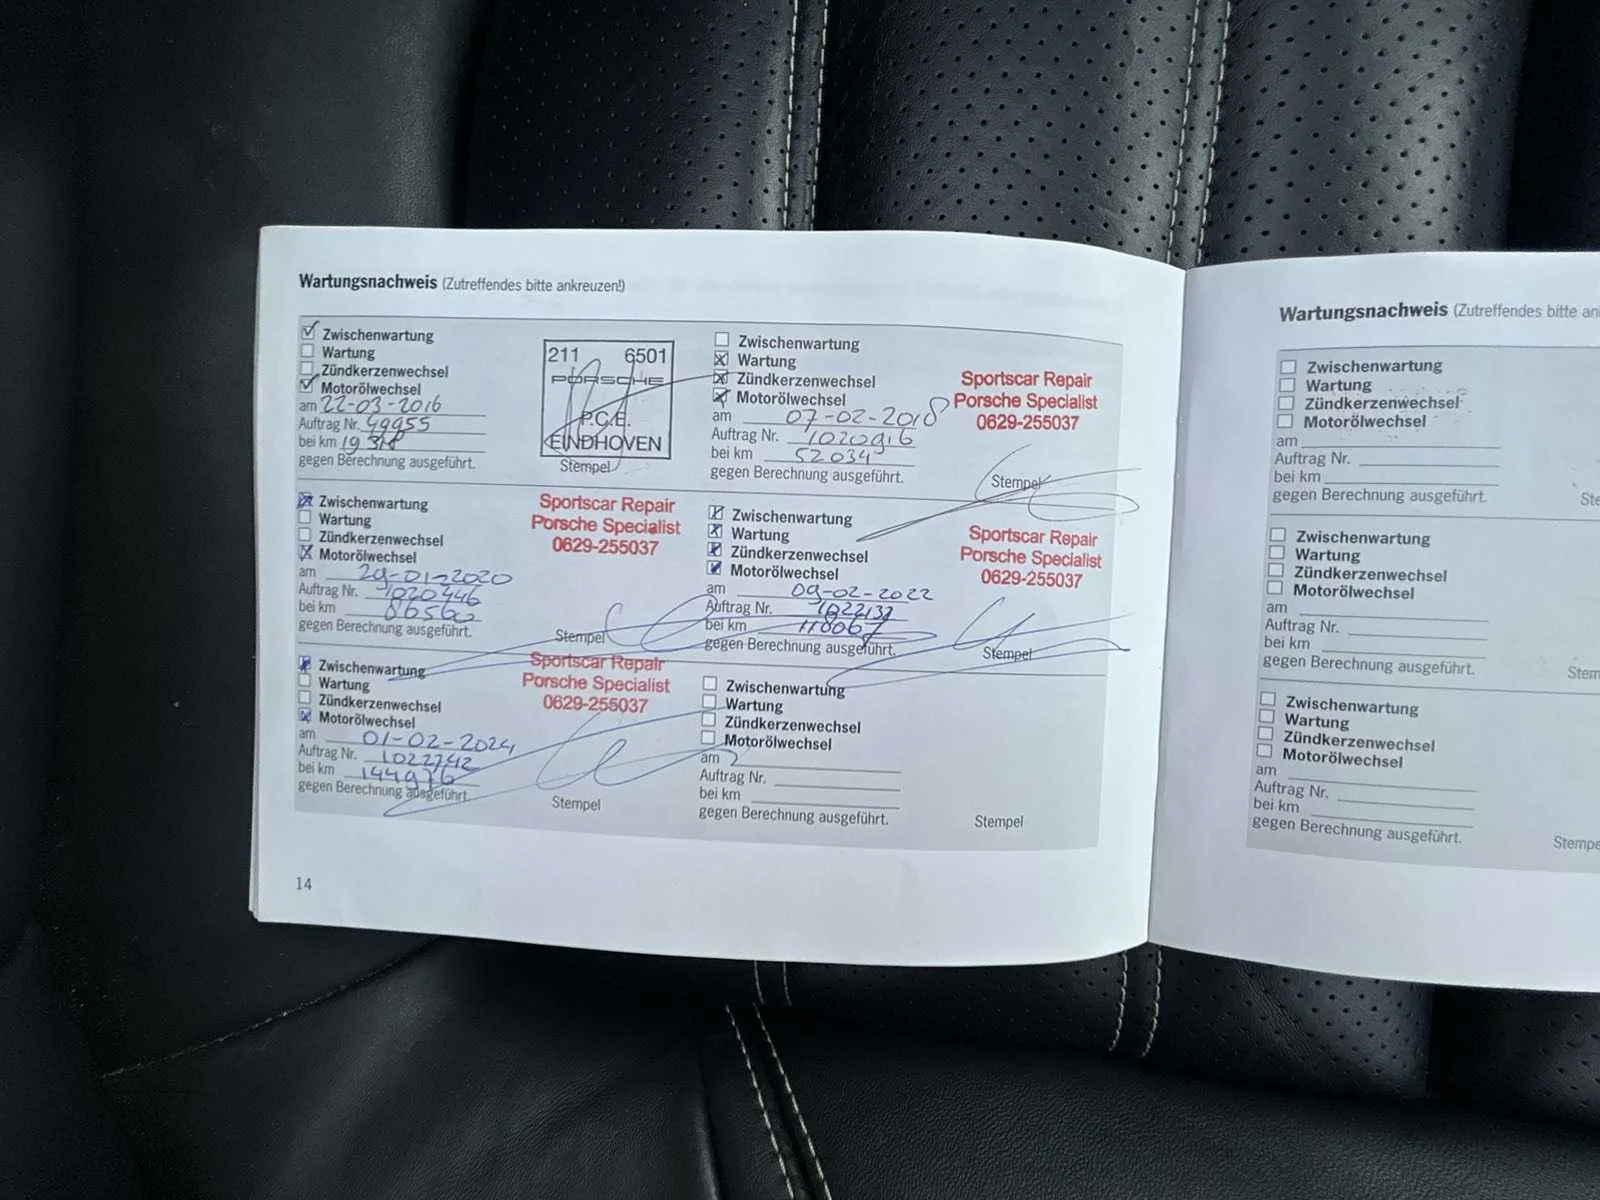 Wartungsnachweis (Zutreffendes bitte ankreuzen!)
Zwischenwartung
Wartung
Zündkerzenwechsel
Motorölwechsel
am 22-03-2016
Auftrag Nr. 49955
bei km 19318
gegen Berechnung ausgeführt.
211 6501
PORSCHE
P.C.E.
EINDHOVEN
Stempel
Zwischenwartung
Wartung
Zündkerzenwechsel
Motorölwechsel
am 07-02-2018
Auftrag Nr. 1020916
bei km 52034
gegen Berechnung ausgeführt.
Sportscar Repair
Porsche Specialist
0629-255037
Stempel
Zwischenwartung
Wartung
Zündkerzenwechsel
Motorölwechsel
am 29-01-2020
Auftrag Nr. 1020446
bei km 86560
gegen Berechnung ausgeführt.
Sportscar Repair
Porsche Specialist
0629-255037
Stempel
Zwischenwartung
Wartung
Zündkerzenwechsel
Motorölwechsel
am 09-02-2022
Auftrag Nr. 1022132
bei km 118067
gegen Berechnung ausgeführt.
Sportscar Repair
Porsche Specialist
0629-255037
Stempel
Zwischenwartung
Wartung
Zündkerzenwechsel
Motorölwechsel
am 01-02-2024
Auftrag Nr. 1022742
bei km 144976
gegen Berechnung ausgeführt.
Sportscar Repair
Porsche Specialist
0629-255037
Stempel
Zwischenwartung
Wartung
Zündkerzenwechsel
Motorölwechsel
am
Auftrag Nr.
bei km
gegen Berechnung ausgeführt.
Stempel
14
Wartungsnachweis (Zutreffendes bitte an
Zwischenwartung
Wartung
Zündkerzenwechsel
Motorölwechsel
am
Auftrag Nr.
bei km
gegen Berechnung ausgeführt.
Ste
Zwischenwartung
Wartung
Zündkerzenwechsel
Motorölwechsel
am
Auftrag Nr.
bei km
gegen Berechnung ausgeführt.
Stem
Zwischenwartung
Wartung
Zündkerzenwechsel
Motorölwechsel
am
Auftrag Nr.
bei km
gegen Berechnung ausgeführt.
Stempe